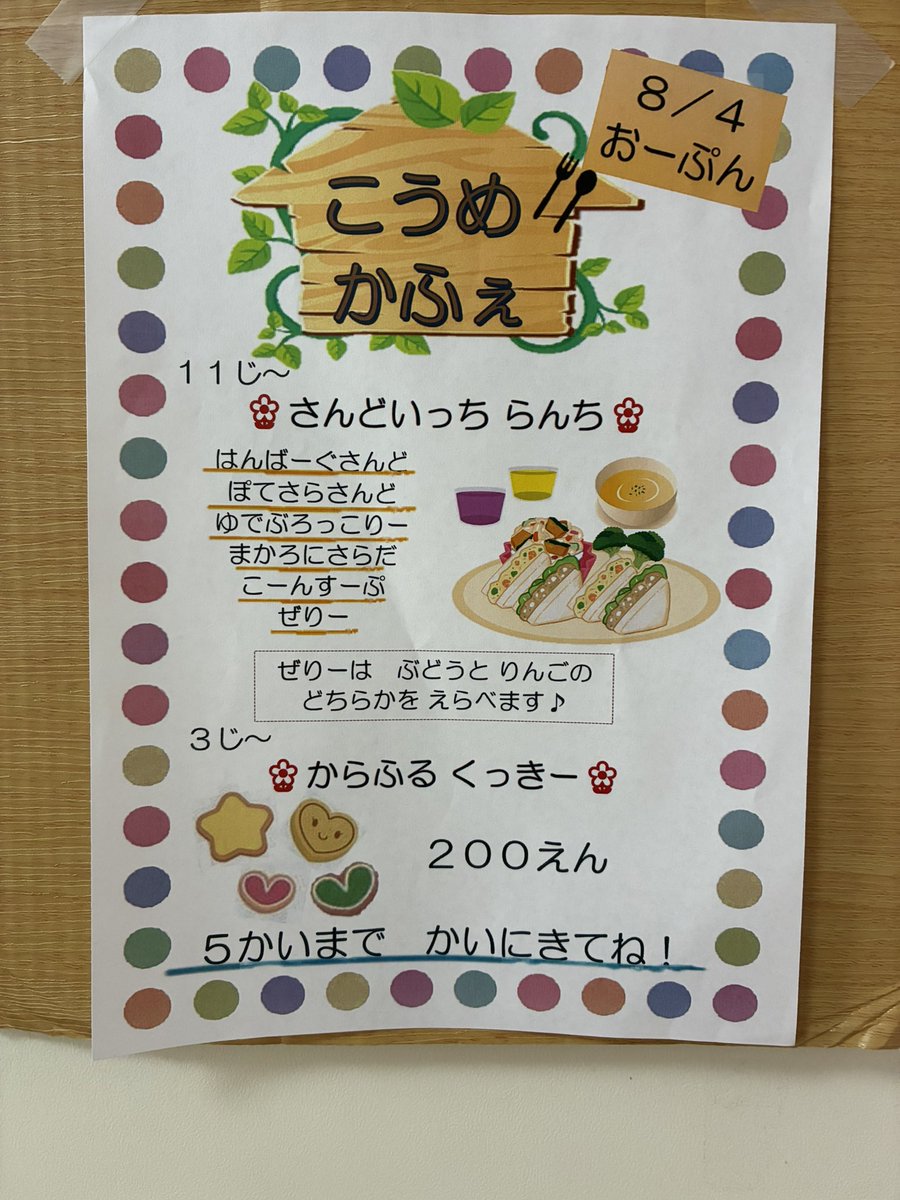 8/4
おーぷん
こうめ
かふぇ
11じ～
さんどいっち らんち
はんばーぐさんど
ぽてさらさんど
ゆでぶろっこりー
まかろにさらだ
こーんすーぷ
ぜりー
ぜりーは ぶどうと りんごの
どちらかを えらべます♪
3じ～
からふる くっきー
200えん
5かいまで かいにきてね！